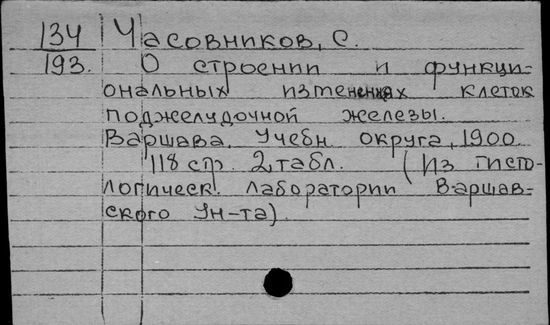 134 Часовников, С.
193. О строении и функци-
ональных изменениях клеток
поджелудочной железы.
Варшава. Учебн. округа, 1900.
118 стр. 2 табл. (Из гисто-
логическ. лаборатории Варшав-
ского Ун-та).